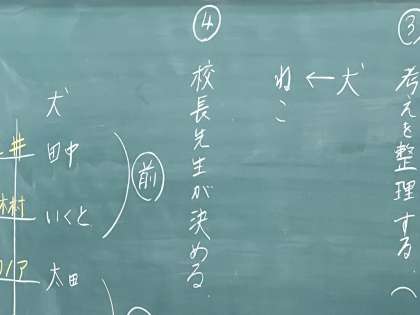 ③ 考えを整理する。(
犬
↓
ねこ
④ 校長先生が決める。
前
犬
田中
いくと
太田
井
村
ノア